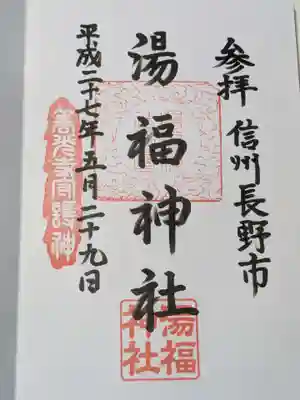 参拝 信州長野市
湯福神社
平成二十七年五月二十九日
善光寺守護神
湯福神社